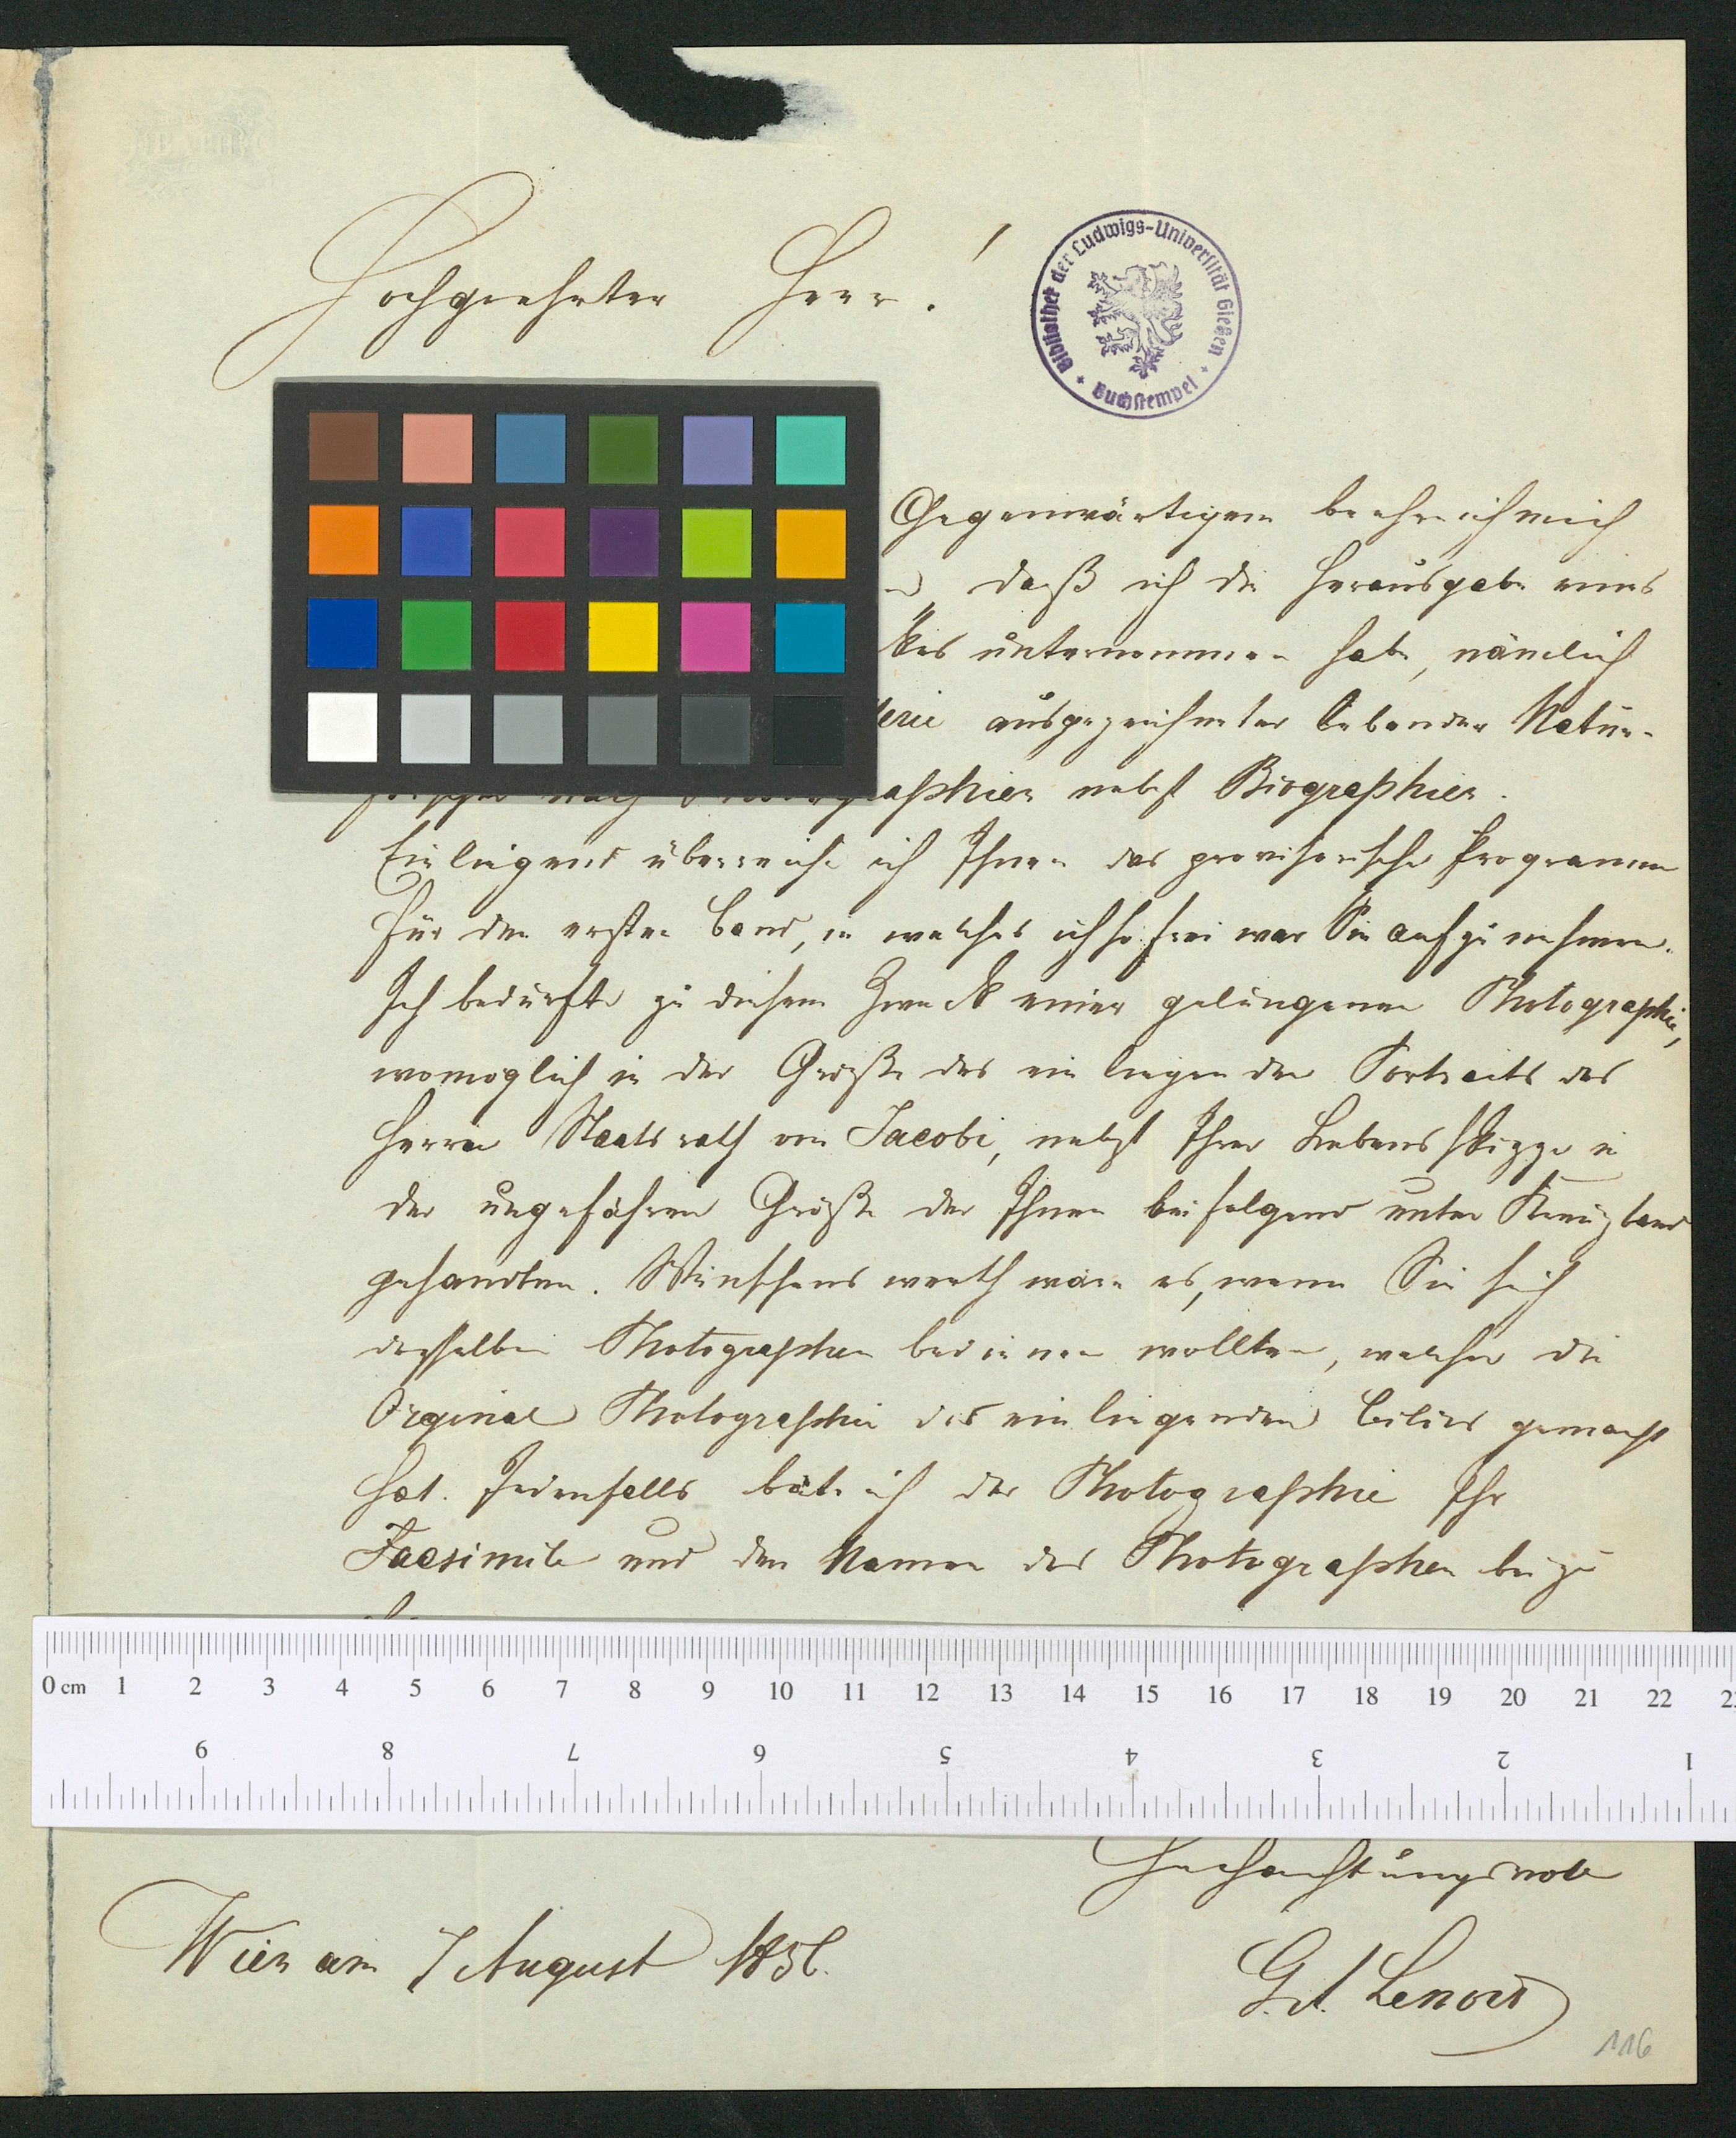 Hochgeehrter Herr!
Bibliothek der Ludwigs-Universität Gießen
Buchstempel
Gegenwärtigem beehre ich mich
daß ich die Herausgabe eines
kes unternommen habe, nämlich
lerie ausgezeichneter lebender Natur-
forscher nach Photographien nebst Biographien.
Einliegend überreiche ich Ihnen das provisorische Programm
für den ersten Band, in welches ich so frei war Sie aufzunehmen.
Ich bedürfte zu diesem Zweck einer gelungenen Photographie,
womöglich in der Größe des einliegenden Portraits des
Herrn Staatsrath von Jacobi, nebst Ihrer Lebensskizze in
der ungefähren Größe der Ihnen beifolgend unter Kreuzband
gesandten. Wünschenswerth wäre es, wenn Sie sich
desselben Photographen bedienen wollten, welcher die
Orginal Photographie des einliegenden Bildes gemacht
hat. Jedenfalls bäte ich der Photographie Ihr
Facsimile und den Namen des Photographen bei zu
0 cm 1 2 3 4 5 6 7 8 9 10 11 12 13 14 15 16 17 18 19 20 21 22
9 8 7 6 5 4 3 2 1
Hochachtungsvoll
Wien am 7 August 1856.
G. A. Lenoir
116